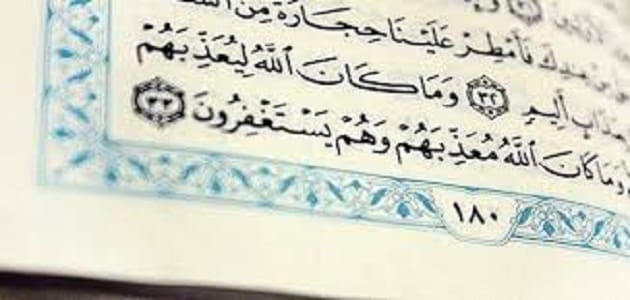 مِنْ عِندِكَ فَأَمْطِرْ عَلَيْنَا حِجَارَةً مِّنَ
عَذَابٍ أَلِيمٍ ٣٢ وَمَا كَانَ ٱللَّهُ لِيُعَذِّبَهُمْ
وَمَا كَانَ ٱللَّهُ مُعَذِّبَهُمْ وَهُمْ يَسْتَغْفِرُونَ ٣٣
١٨٠